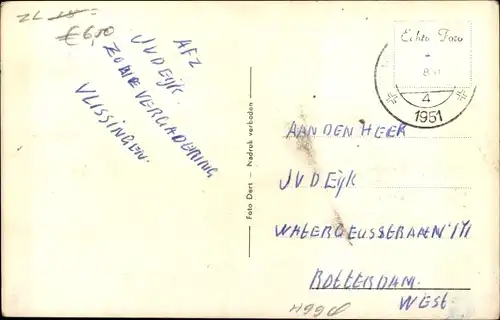 ZL 15
€6,50
AFZ
JVDEijk.
ZOMERVERGADERING
VLISSINGEN.
Foto Dert - Nadruk verboden
Echte Foto
4
1961
AAN DEN HEER
JVDEijk
WATERGEUSSTRAAT
ROTTERDAM.
WEST.